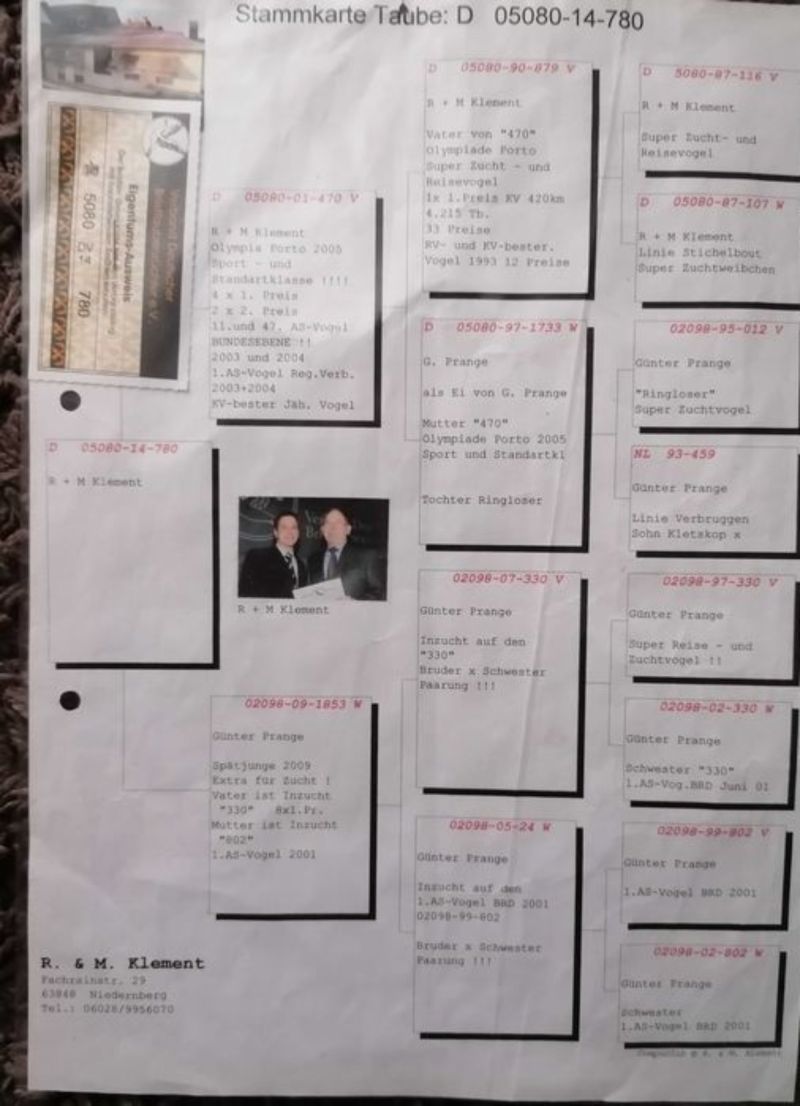 Stammkarte Taube: D 05080-14-780
Eigentums-Ausweis
5080 780
D 05080-14-780
R + M Klement
D 05080-01-470 V
R + M Klement
Olympia Porto 2005
Sport - und
Standartklasse !!!!
4 x 1. Preis
2 x 2. Preis
11.und 47. AS-Vogel
BUNDESEBENE !!
2003 und 2004
1.AS-Vogel Reg.Verb.
2003+2004
KV-bester Jäh. Vogel
R + M Klement
02098-09-1853 W
Günter Prange
Spätjunge 2009
Extra für Zucht !
Vater ist Inzucht
"330" 8x1.Pr.
Mutter ist Inzucht
"802"
1.AS-Vogel 2001
D 05080-90-879 V
R + M Klement
Vater von "470"
Olympiade Porto
Super Zucht - und
Reisevogel
1x 1.Preis KV 420km
4.215 Tb.
33 Preise
RV- und KV-bester.
Vogel 1993 12 Preise
D 05080-97-1733 W
G. Prange
als Ei von G. Prange
Mutter "470"
Olympiade Porto 2005
Sport und Standartkl
Tochter Ringloser
02098-07-330 V
Günter Prange
Inzucht auf den
"330"
Bruder x Schwester
Paarung !!!
02098-05-24 W
Günter Prange
Inzucht auf den
1.AS-Vogel BRD 2001
02098-99-802
Bruder x Schwester
Paarung !!!
D 5080-87-116 V
R + M Klement
Super Zucht- und
Reisevogel
D 05080-87-107 W
R + M Klement
Linie Stichelbout
Super Zuchtweibchen
02098-95-012 V
Günter Prange
"Ringloser"
Super Zuchtvogel
NL 93-459
Günter Prange
Linie Verbruggen
Sohn Kletskop x
02098-97-330 V
Günter Prange
Super Reise - und
Zuchtvogel !!
02098-02-330 W
Günter Prange
Schwester "330"
1.AS-Vog.BRD Juni 01
02098-99-802 V
Günter Prange
1.AS-Vogel BRD 2001
02098-02-802 W
Günter Prange
Schwester
1.AS-Vogel BRD 2001
R. & M. Klement
Fachrainstr. 29
63848 Niedernberg
Tel.: 06028/9956070